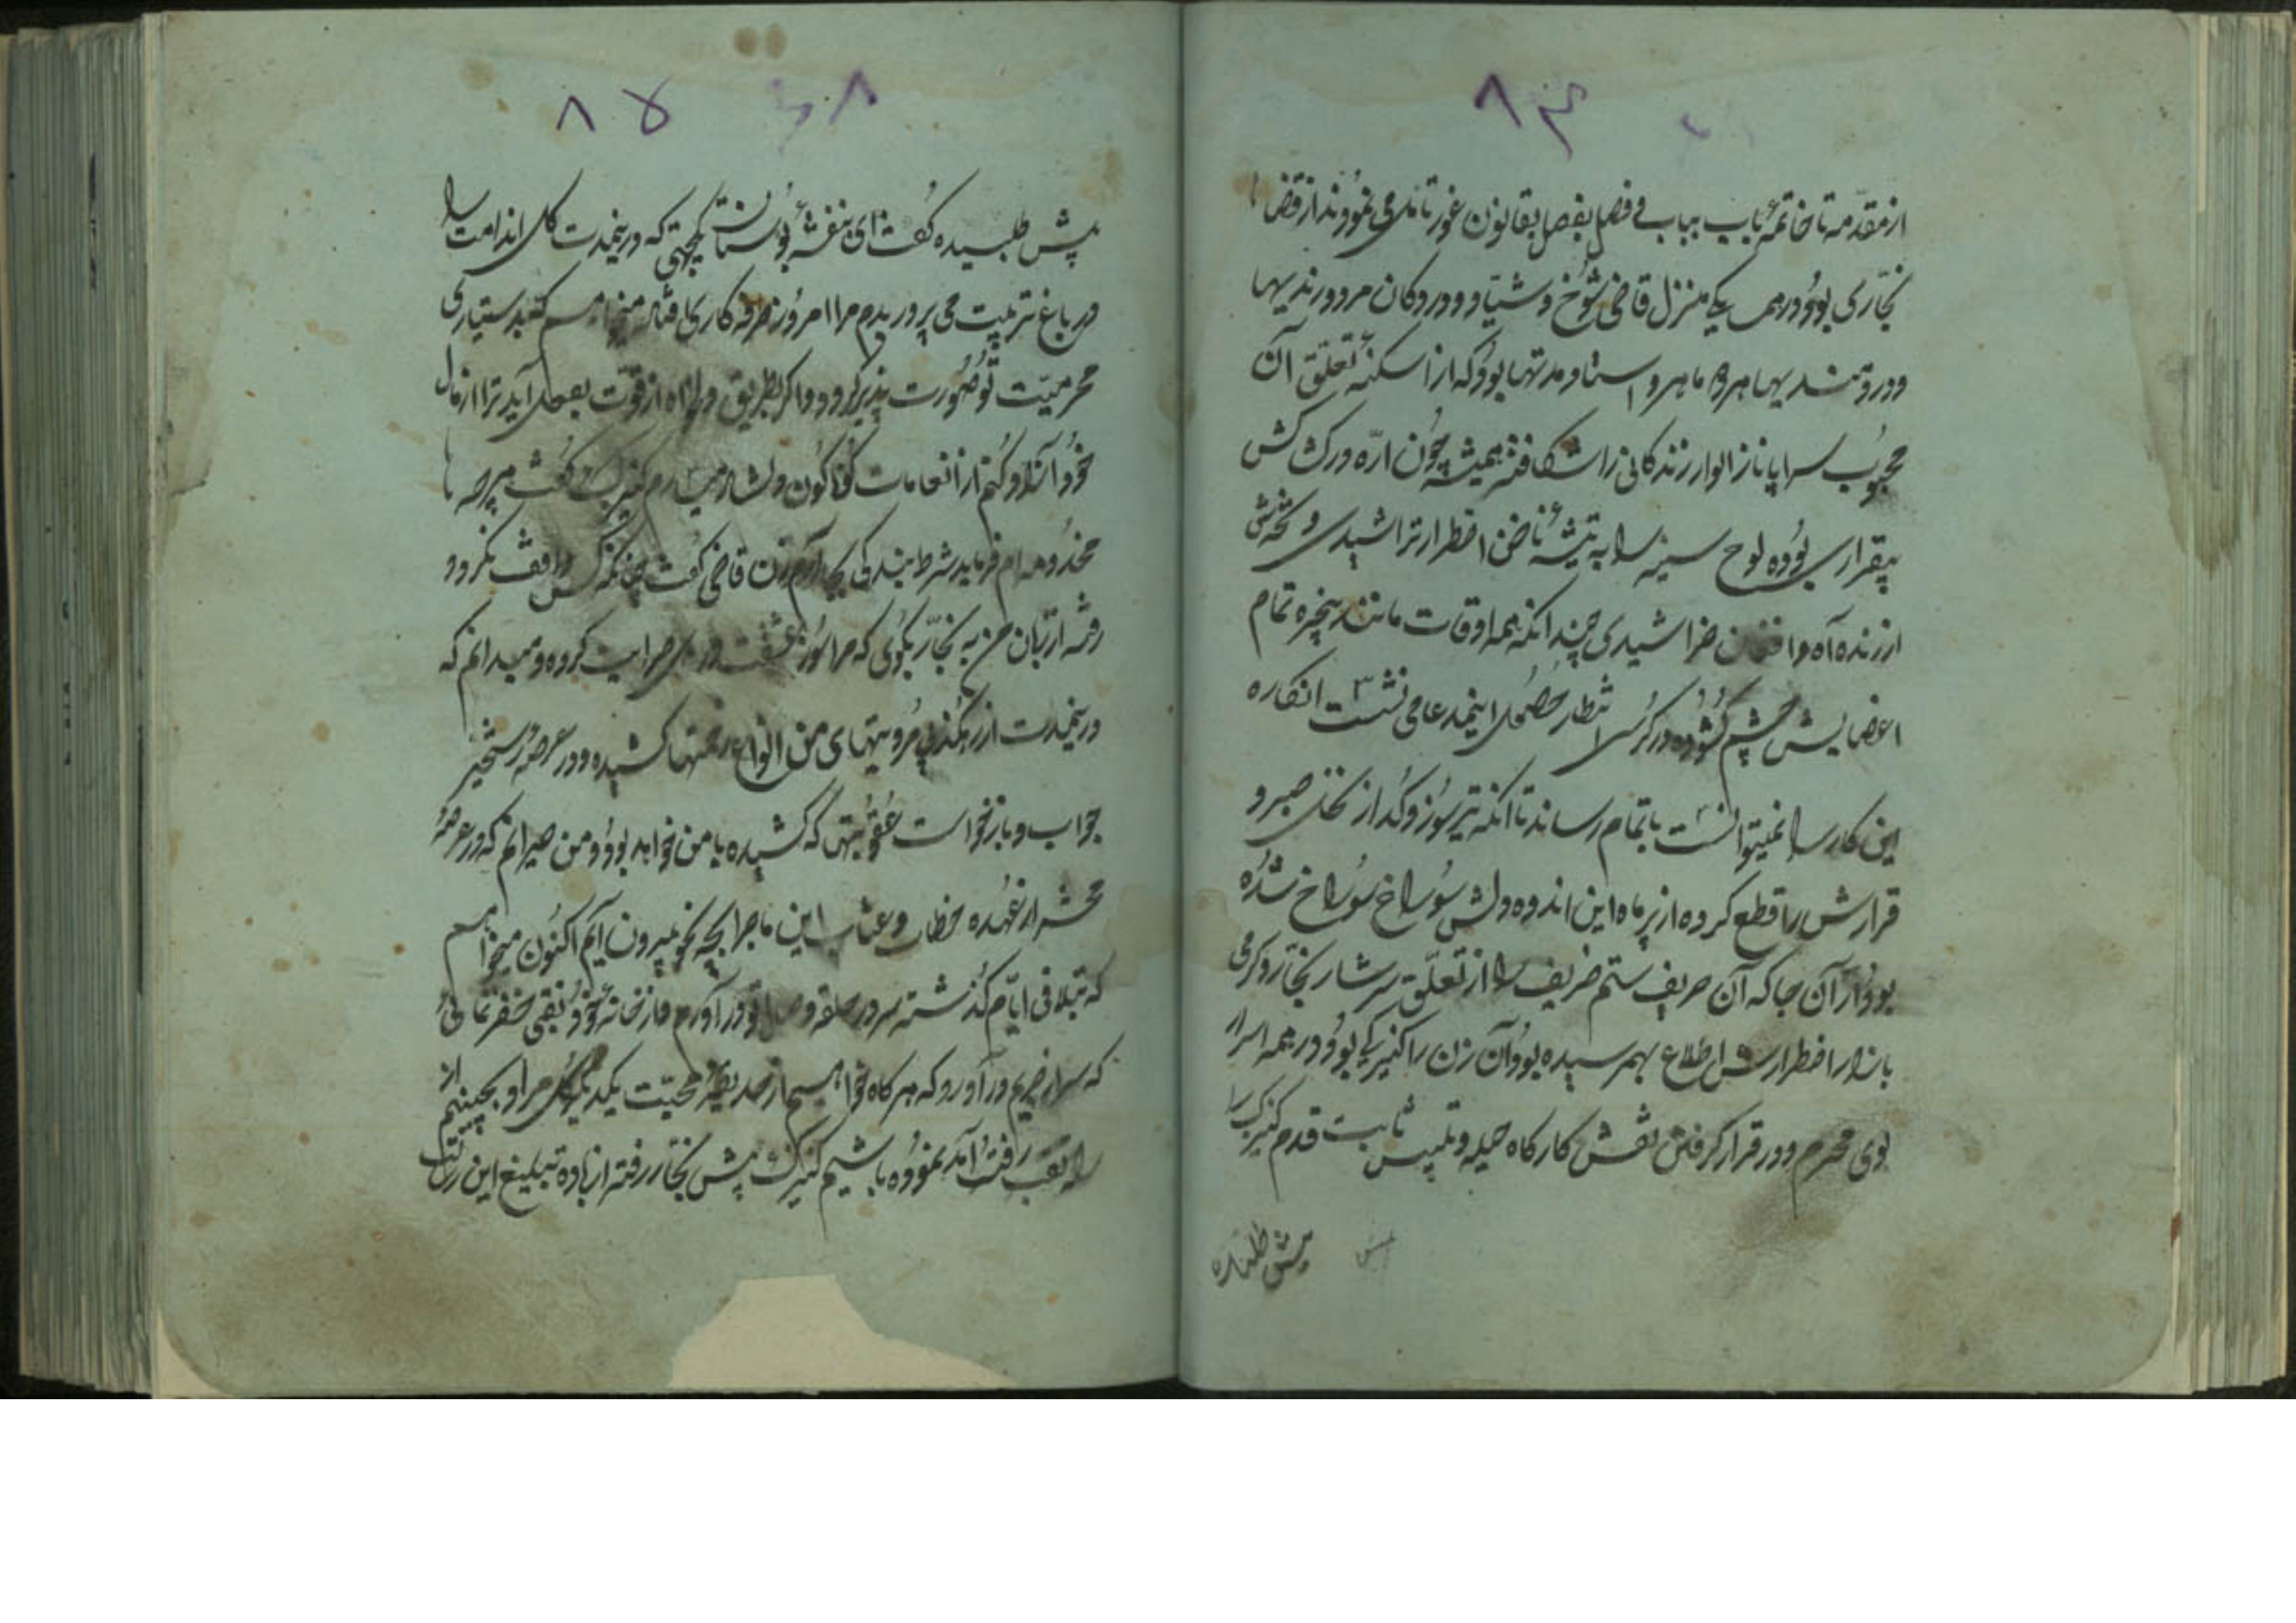 ۸۴
از مقدّمه تا خاتمهٔ باب بباب و فصل بفصل بقانون غور تامل می نمودند از قضا
نجّاری بود در همسایکی منزل قاضی شوخ و شیّاد و در دوکان مرد و رندیها
و دردمندیها مرد ماهر و استاد مدتها بود که از اسکنهٔ تعلّق آن
محبوب سراپا ناز الوار زندکانی را شکافته همیشه چون ارّه در کش کش
بیقراری بوده لوح سینه را به تیشهٔ ناخن اضطرار تراشیدی و تخته‌ش
از رنده آه و افغان خراشیدی چندانکه همه اوقات مانند پنجره تمام
اعضایش چشم کشوده در کرسی انتظار حصول اینمدعا می نشست انکاره
این کار را نمیتوانست باتمام رساند تا انکه تبر سوز و کداز نخل صبر و
قرارش را قطع کرده از پرماه این اندوه دلش سوراخ سوراخ شده
بود از آن جا که آن حریف ستم ظریف را از تعلّق سرشار نجّار و کرمی
بازار اضطرارش اطلاع بهمرسیده بود آن زن را کنیزکی بود در همه اسرار
وی محرم و در قرار کرفتن نقش کارکاه حیله و تلبیس ثابت قدم کنیزک را
پیش طلبیده
۸۵
پیش طلبیده کفت ای بنفشهٔ بوستان یکجهتی که درینمدت کل اندامت را
در باغ تربیت می پروریدم مرا امروز طرفه کاری افتاده میخواهم که بدستیاری
محرمیّت تو صورت پذیر کردد و اکر بطریق دلخواه از قوّت بفعل آید ترا از مال
خود آزاد کنم از انعامات کوناکون دلشاد میسازم کنیزک کفت هر چه
مخدومه ام فرماید شرط بندکی بجا آرم زن قاضی کفت چنانکه کس واقف نکردد
رفته از زبان من به نجّار بکوی که مرا سوز عشقت در دل سرایت کرده و میدانم که
درینمدت از رهکذر بیمروتیهای من انواع زحمتها کشیده و در عرصهٔ رستخیز
جواب و بازخواست عقوبتهای که کشیده با من خواهد بود و من حیرانم که در عرصهٔ
محشر از عهده خطاب و عتاب این ماجرا بچه نحو بیرون آیم اکنون میخواهم
که بتلافی ایّام کذشته سر در حلقه وصال تو در آورم و از خانهٔ خود نقبی حفر نمائی
که سر از حریم در آورد که هر کاه خواهیم از حدیقهٔ محبّت یکدیکر کل مراد بچینیم از
راه نقب رفت آمد نموده باشیم کنیزک پیش نجّار رفته از باده تبلیغ این رسالت